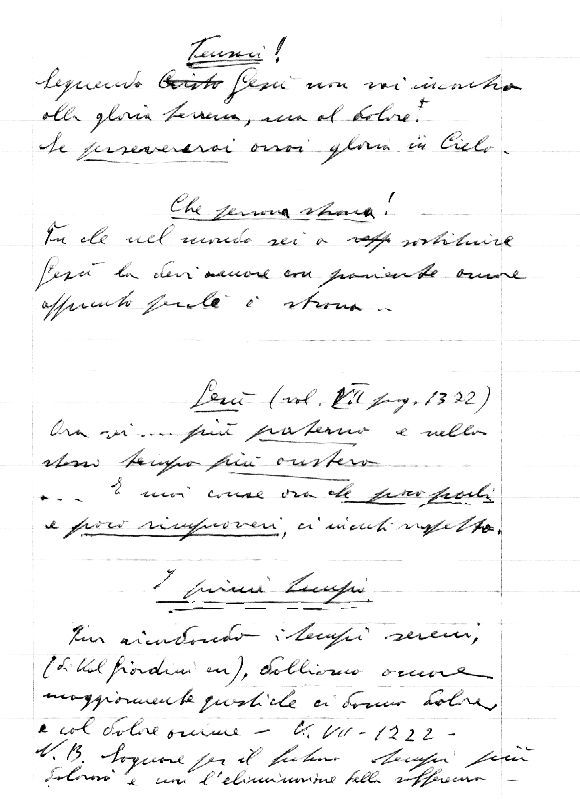 Pensaci!
Seguendo Cristo Gesù non vai incontro
alla gloria terrena, ma al dolore!
Se persevererai avrai gloria in Cielo.
Che persona strana!
Tu che nel mondo sei a sostituire
Gesù la devi amare con paziente amore
appunto perché è strana...
Gesù (vol. VII pag. 1322)
Ora sei.... più paterno e nello
stesso tempo più austero
.... E mai come ora che poco parli
e poco rimproveri, ci incuti rispetto.
I primi tempi
Pur ricordando i tempi sereni,
dobbiamo amare
maggiormente questi che ci danno dolore,
e col dolore amare - V. VII - 1222 -
N.B. Sognare per il futuro tempi più
dolorosi e non l'eliminazione della sofferenza -